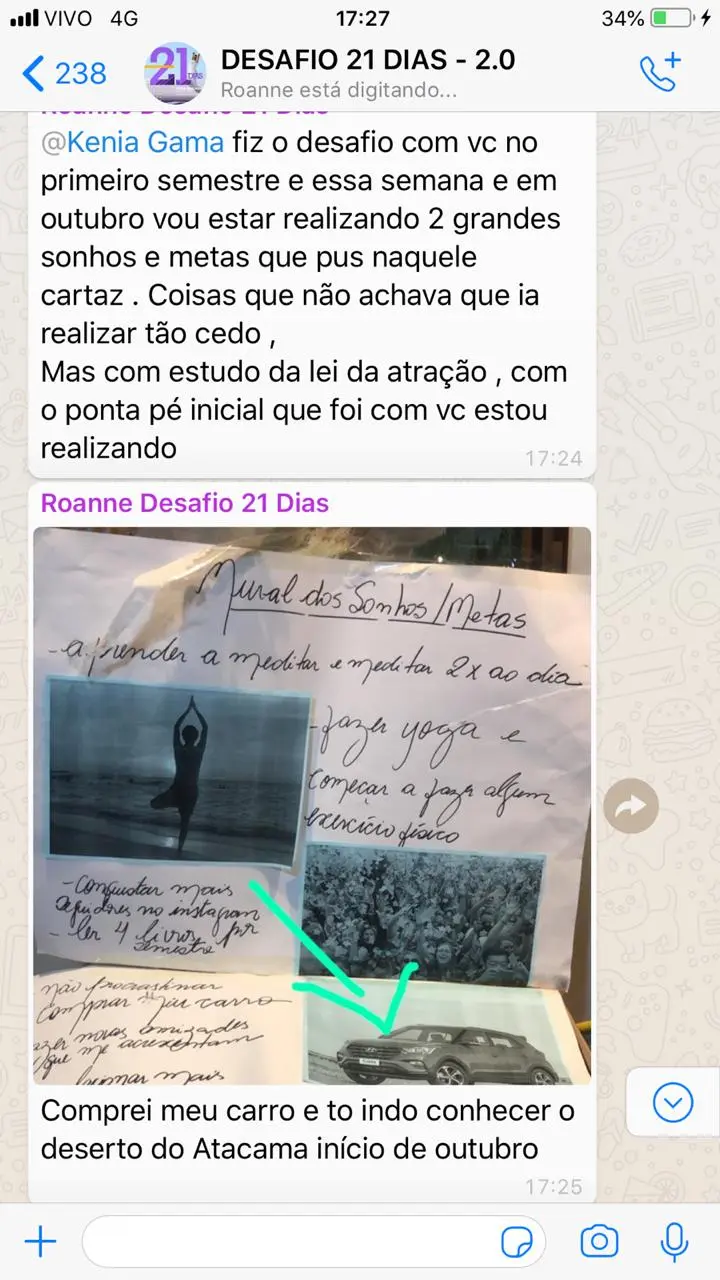 VIVO 4G 17:27 34%
238
21
DIAS
DESAFIO 21 DIAS - 2.0
Roanne está digitando...
Roanne Desafio 21 Dias
@Kenia Gama fiz o desafio com vc no
primeiro semestre e essa semana e em
outubro vou estar realizando 2 grandes
sonhos e metas que pus naquele
cartaz . Coisas que não achava que ia
realizar tão cedo ,
Mas com estudo da lei da atração , com
o ponta pé inicial que foi com vc estou
realizando
17:24
Roanne Desafio 21 Dias
Mural dos Sonhos/Metas
-aprender a meditar e meditar 2x ao dia
-fazer yoga e
começar a fazer algum
exercício físico
-conquistar mais
seguidores no instagram
- ler 4 livros por
semestre
não procrastinar
comprar meu carro
novas amizades
que me acrescentam
mais
Comprei meu carro e to indo conhecer o
deserto do Atacama início de outubro
17:25